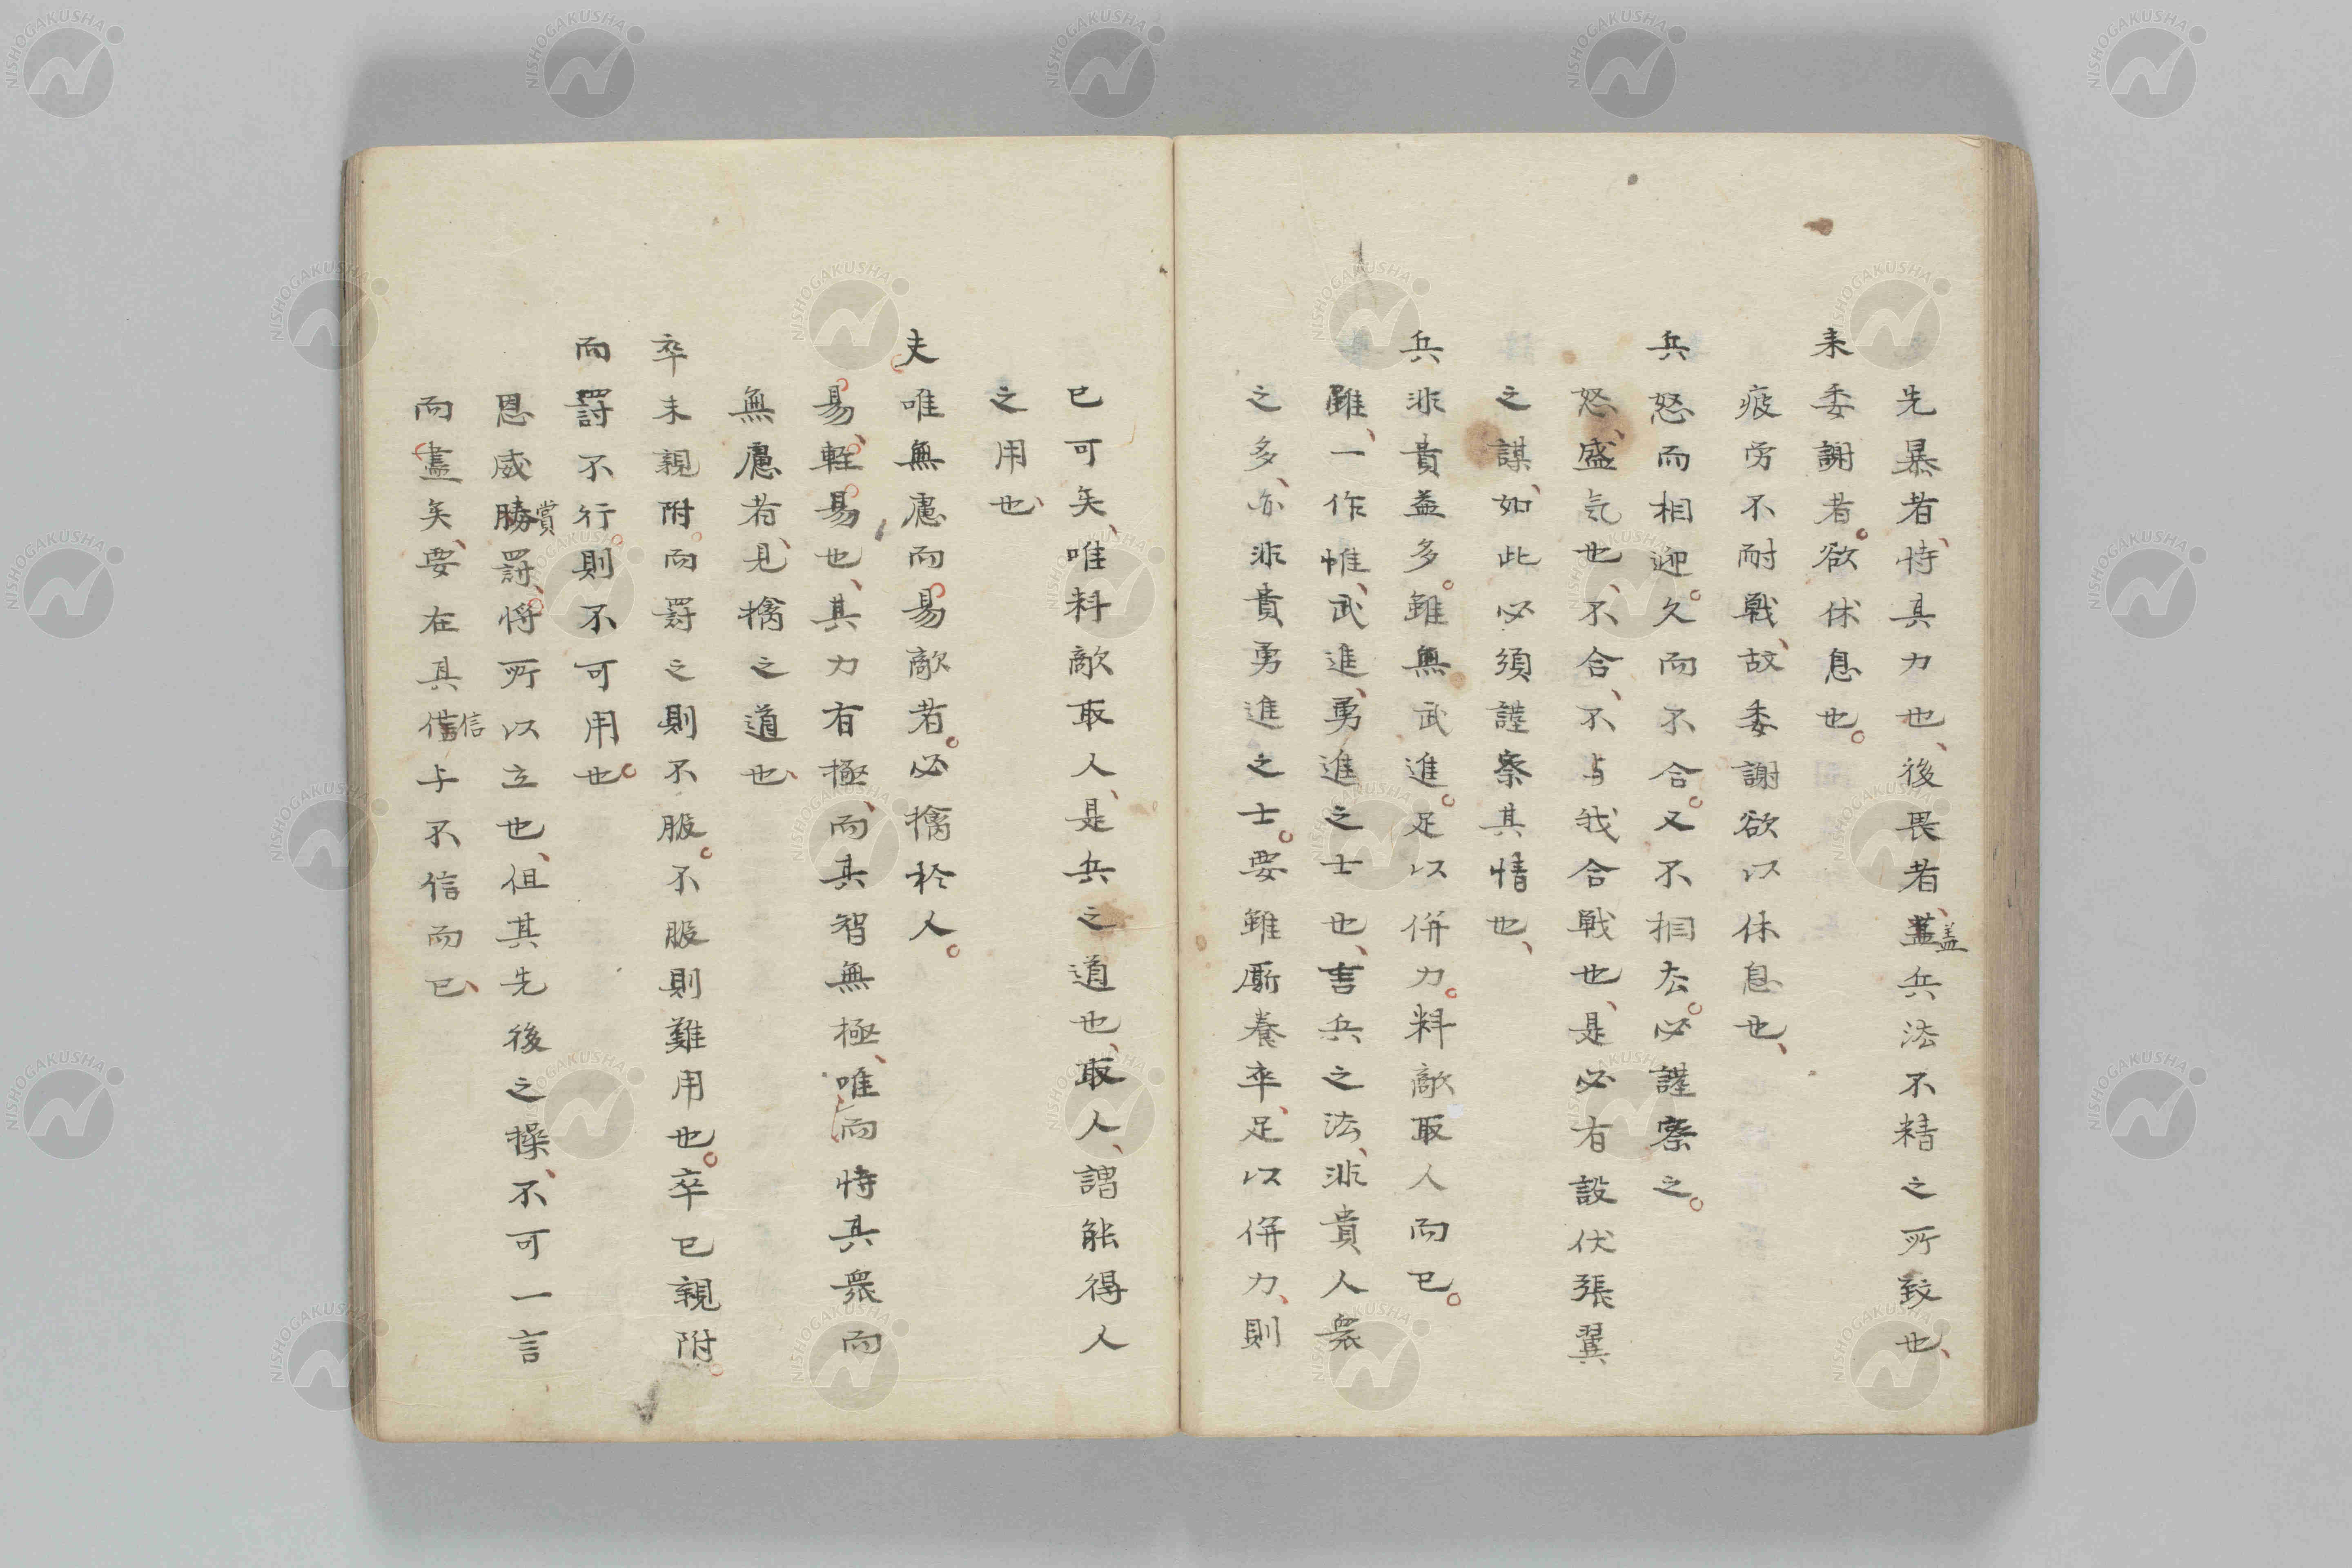 先暴者、恃其力也、後畏者、蓋兵法不精之所致也、
盖
来委謝者。欲休息也。
疲労不耐戦、故委謝欲以休息也、
兵怒而相迎。久而不合。又不相去。必謹察之。
怒、盛気也、不合、不与我合戦也、是必有設伏張翼
之謀、如此必須謹察其情也、
兵非貴益多。雖無武進。足以併力。料敵取人而已。
雖、一作惟、武進、勇進之士也、言兵之法、非貴人衆
之多、亦非貴勇進之士。要雖厮養卒、足以併力、則
已可矣、唯料敵取人、是兵之道也、取人、謂能得人
之用也、
夫唯無慮而易敵者。必擒於人。
易、軽易也、其力有極、而其智無極、唯而恃其衆而
無慮者、見擒之道也、
卒未親附。而罸之則不服。不服則難用也。卒已親附。
而罸不行。則不可用也。
恩威勝罸、将所以立也、但其先後之操、不可一言
賞
而盡矣、要在其信与不信而已、
信
NISHOGAKUSHA